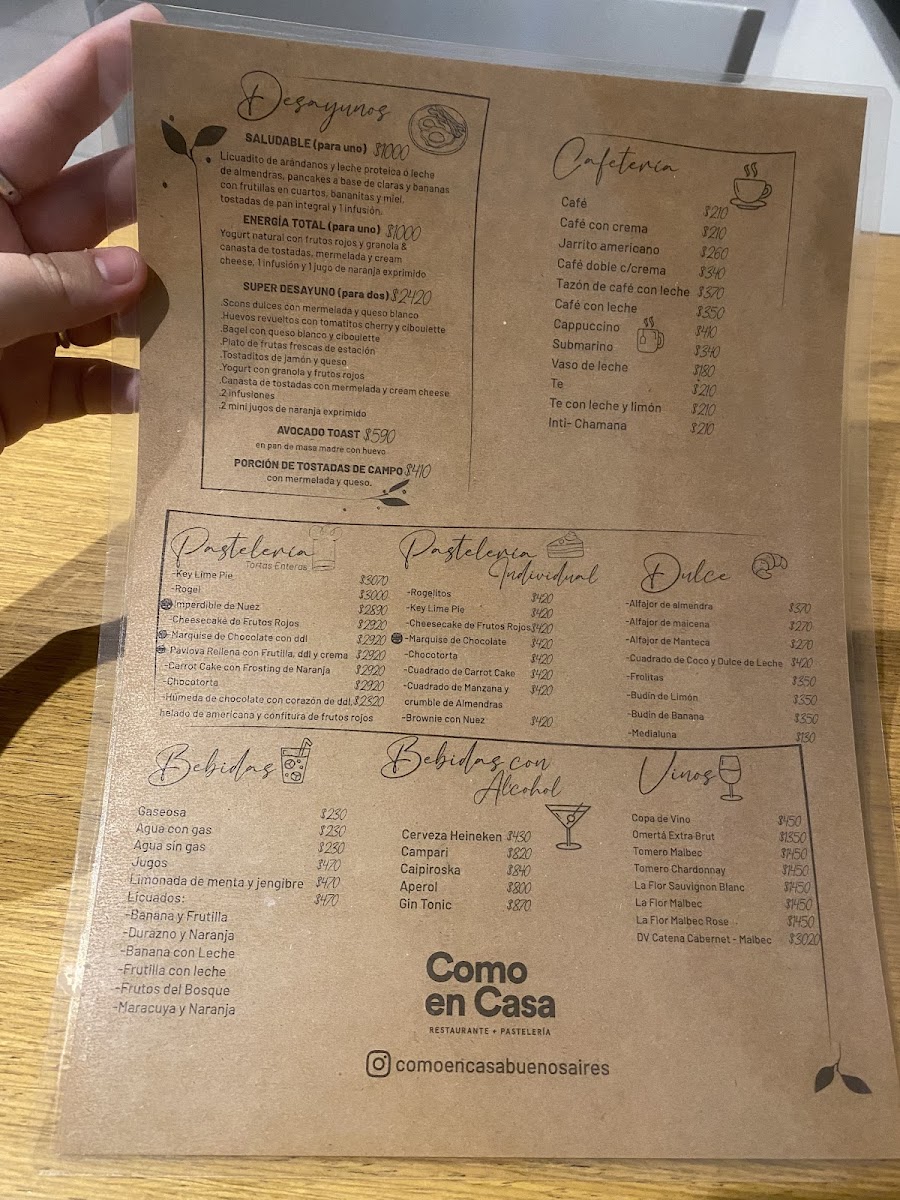 Desayunos
SALUDABLE (para uno) $1000
Licuadito de arándanos y leche proteica ó leche
de almendras, pancakes a base de claras y bananas
con frutillas en cuartos, bananitas y miel.
tostadas de pan integral y 1 infusión.
ENERGÍA TOTAL (para uno) $1000
Yogurt natural con frutos rojos y granola &
canasta de tostadas, mermelada y cream
cheese, 1 infusión y 1 jugo de naranja exprimido
SUPER DESAYUNO (para dos) $2420
.Scons dulces con mermelada y queso blanco
.Huevos revueltos con tomatitos cherry y ciboulette
.Bagel con queso blanco y ciboulette
.Plato de frutas frescas de estación
.Tostaditos de jamón y queso
.Yogurt con granola y frutos rojos
.Canasta de tostadas con mermelada y cream cheese
.2 infusiones
.2 mini jugos de naranja exprimido
AVOCADO TOAST $590
en pan de masa madre con huevo
PORCIÓN DE TOSTADAS DE CAMPO $410
con mermelada y queso.
Cafetería
Café $210
Café con crema $210
Jarrito americano $260
Café doble c/crema $340
Tazón de café con leche $370
Café con leche $350
Cappuccino $410
Submarino $340
Vaso de leche $180
Te $210
Te con leche y limón $210
Inti- Chamana $210
Pastelería
Tortas Enteras
-Key Lime Pie $3070
-Rogel $3000
Imperdible de Nuez $2890
-Cheesecake de Frutos Rojos $2920
-Marquise de Chocolate con ddl $2920
Pavlova Rellena con Frutilla, ddl y crema $2920
-Carrot Cake con Frosting de Naranja $2920
-Chocotorta $2920
-Húmeda de chocolate con corazón de ddl, $2320
helado de americana y confitura de frutos rojos
Pastelería
Individual
-Rogelitos $420
-Key Lime Pie $420
-Cheesecake de Frutos Rojos $420
-Marquise de Chocolate $420
-Chocotorta $420
-Cuadrado de Carrot Cake $420
-Cuadrado de Manzana y $420
crumble de Almendras
-Brownie con Nuez $420
Dulce
-Alfajor de almendra $370
-Alfajor de maicena $270
-Alfajor de Manteca $270
-Cuadrado de Coco y Dulce de Leche $420
-Frolitas $350
-Budin de Limón $350
-Budin de Banana $350
-Medialuna $130
Bebidas
Gaseosa $230
Agua con gas $230
Agua sin gas $230
Jugos $470
Limonada de menta y jengibre $470
Licuados: $470
-Banana y Frutilla
-Durazno y Naranja
-Banana con Leche
-Frutilla con leche
-Frutos del Bosque
-Maracuya y Naranja
Bebidas con
Alcohol
Cerveza Heineken $430
Campari $820
Caipiroska $840
Aperol $800
Gin Tonic $870
Vinos
Copa de Vino $450
Omertá Extra Brut $1350
Tomero Malbec $1450
Tomero Chardonnay $1450
La Flor Sauvignon Blanc $1450
La Flor Malbec $1450
La Flor Malbec Rose $1450
DV Catena Cabernet - Malbec $3020
Como
en Casa
RESTAURANTE + PASTELERÍA
comoencasabuenosaires